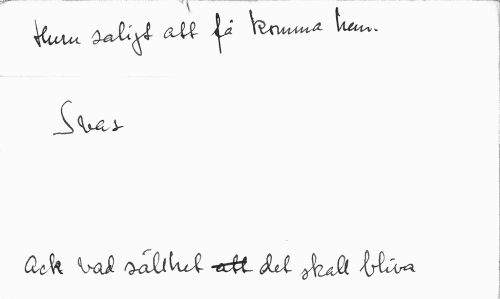 Huru saligt att få komma hem.
Svar
Ack vad sällhet att det skall bliva